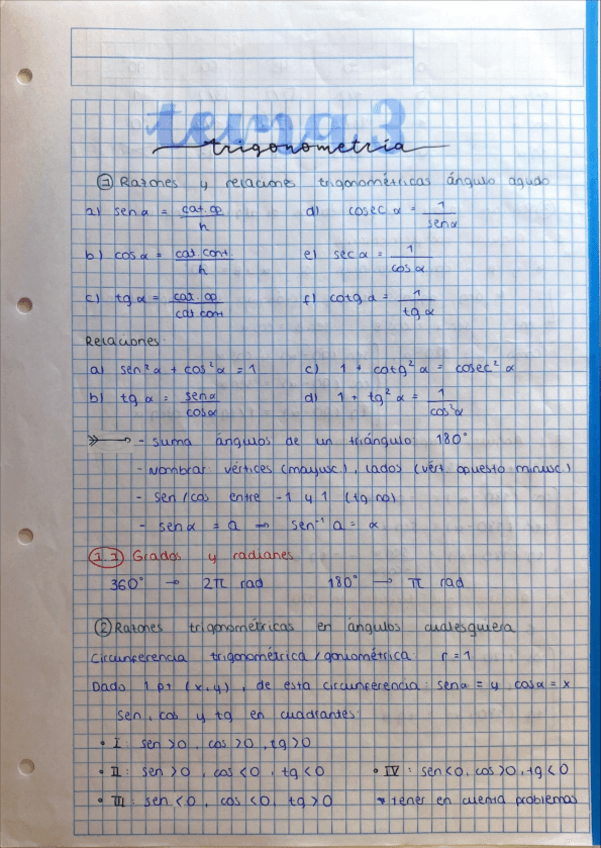 tema 3
trigonometría
① Razones y relaciones trigonométricas ángulo agudo
a) sen α = cat. op / h    d) cosec α = 1 / sen α
b) cos α = cat. cont. / h    e) sec α = 1 / cos α
c) tg α = cat. op / cat cont    f) cotg α = 1 / tg α
Relaciones:
a) sen² α + cos² α = 1    c) 1 + cotg² α = cosec² α
b) tg α = sen α / cos α    d) 1 + tg² α = 1 / cos² α
- Suma ángulos de un triángulo: 180°
- Nombrar vértices (mayusc.), lados (vért. opuesto minusc.)
- sen / cos entre -1 y 1 (tg no)
- sen α = a → sen⁻¹ a = α
1.1 Grados y radianes
360° → 2π rad    180° → π rad
② Razones trigonométricas en ángulos cualesquiera
Circunferencia trigonométrica / goniométrica: r = 1
Dado 1 pt (x, y), de esta circunferencia: sen α = y cos α = x
sen, cos y tg en cuadrantes:
• I: sen > 0, cos > 0, tg > 0
• II: sen > 0, cos < 0, tg < 0    • IV: sen < 0, cos > 0, tg < 0
• III: sen < 0, cos < 0, tg > 0    * tener en cuenta problemas